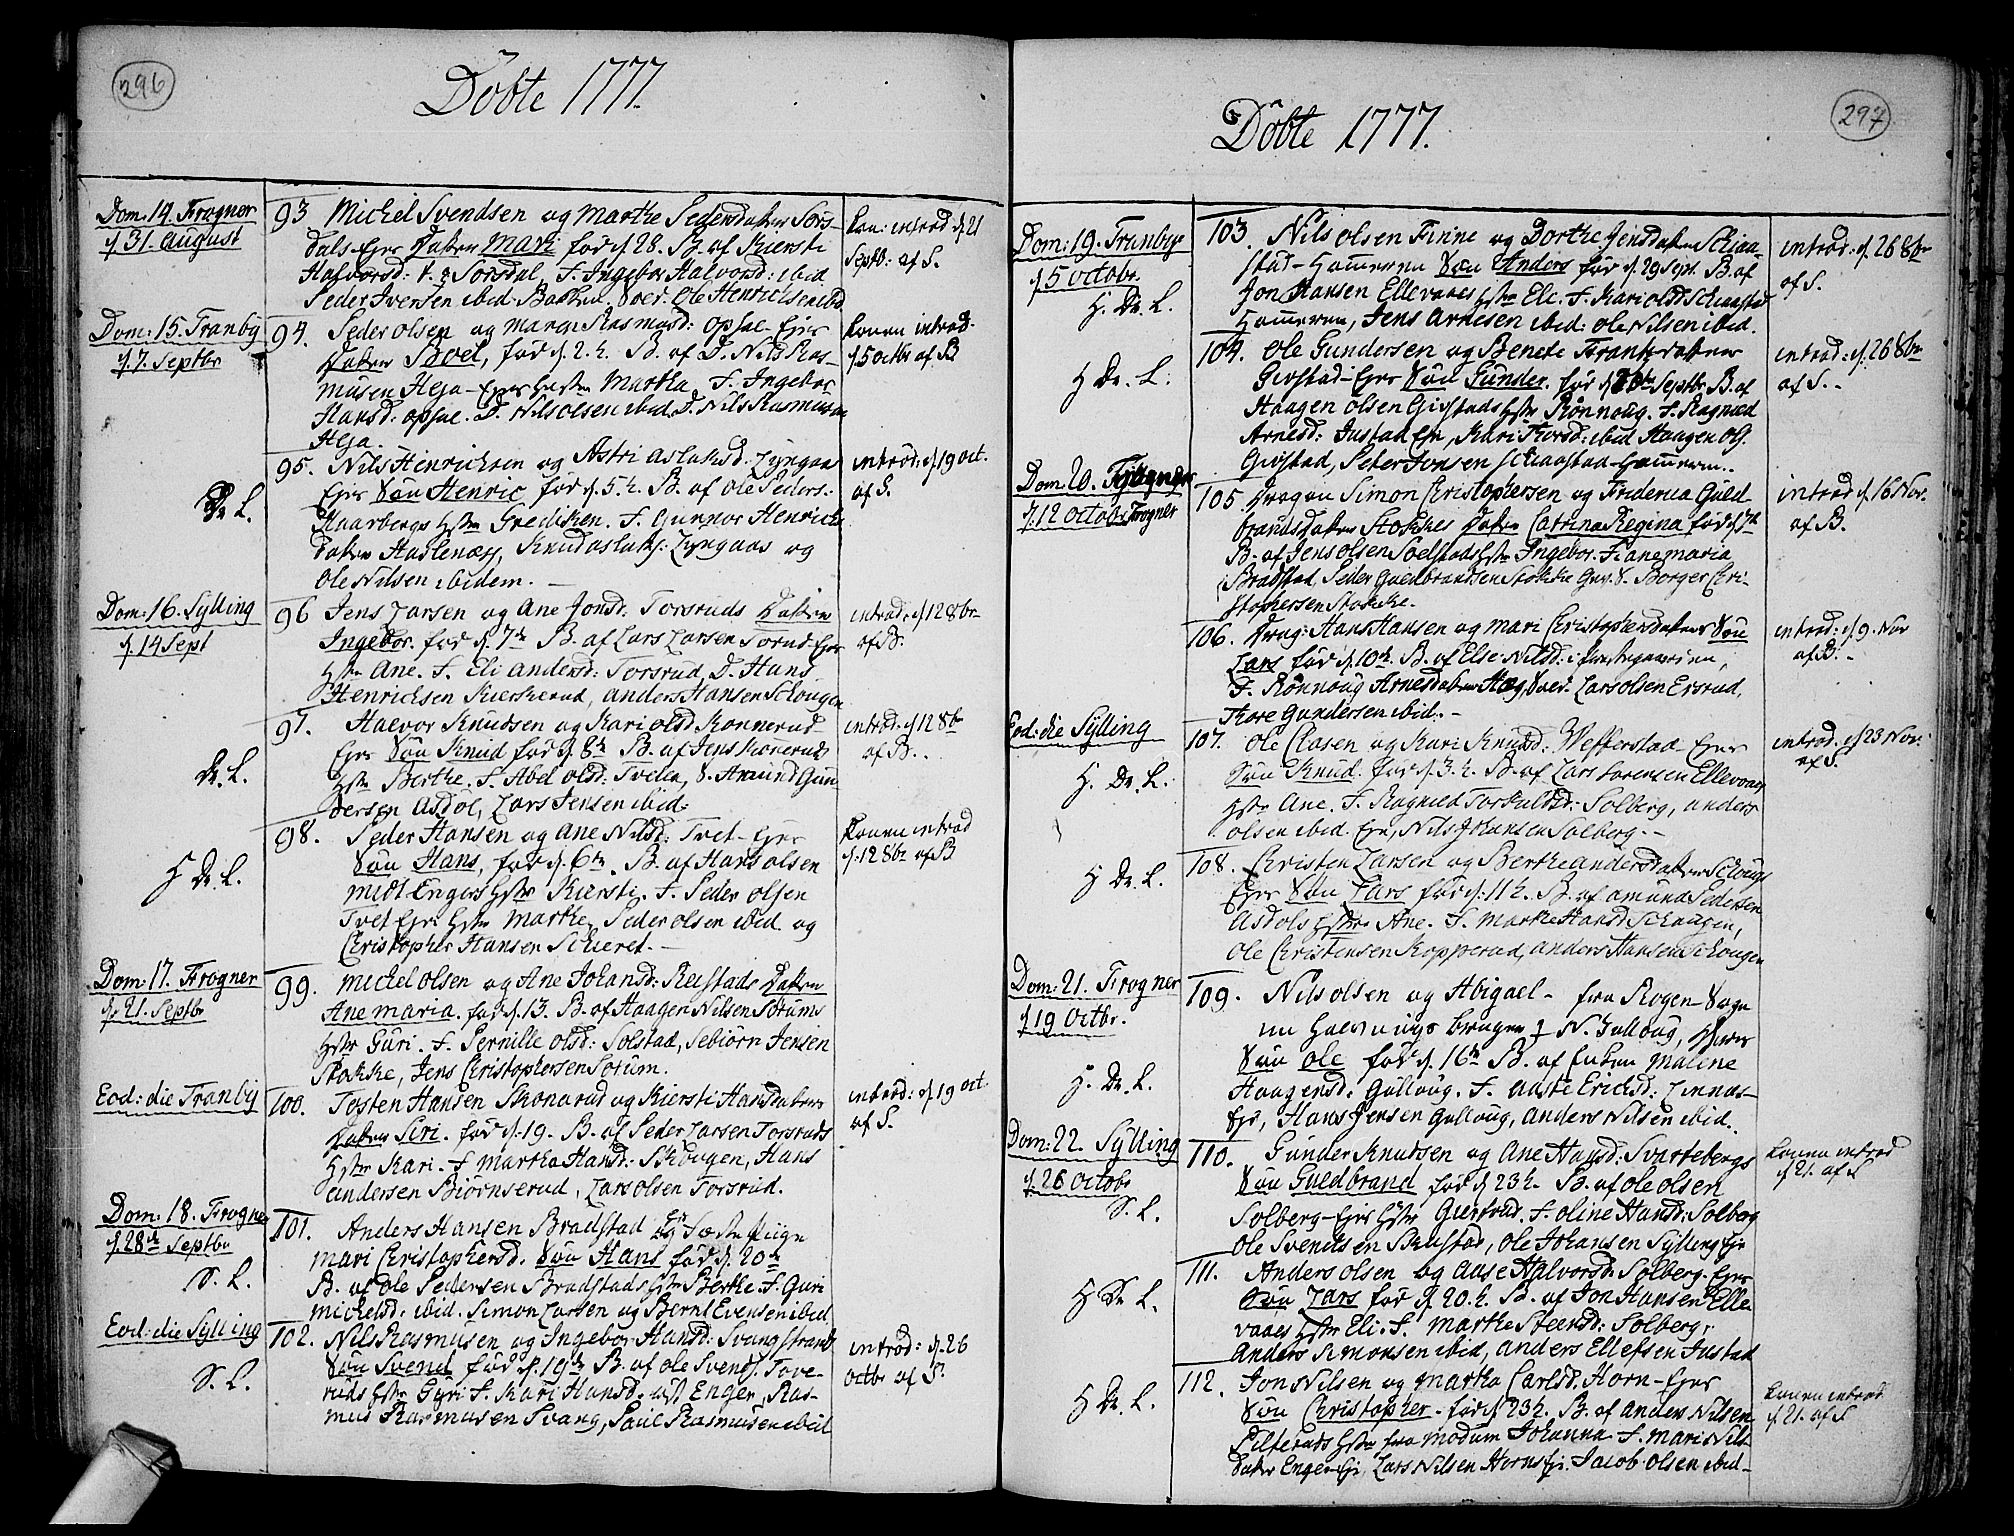 296
Döbte 1777.
Dom: 14. Frogner
d. 31. august
93 Michel Svendsen og Marthe Pedersdatter Sörs-
dals-Ejer Datter Mari föd d. 28. B. af Kiersti
Halvorsd: Sorsdal, F. Ingebor Halvorsd: ibid
Peder Iversen ibid. Ole Henrichsen ibid
Konen introd d. 21
Septb: af S.
Dom: 15. Tranby
d. 7. Septbr
94. Peder Olsen og Mari Rasmusd: opsal-Ejer
Datter Boel, föd d. 2. B. af D. Nils Ras-
musen Heja-Ejer Hstr Martha, F. Ingebor
Hansd: opsal. D. Nils olsen ibid D. Nils Rasmusen
Heja.
Konen introd.
d. 5 octbr af B
95. Nils Henrichsen og Astri Aslaksd: Lyngaas
Ejer Sön Henric föd d. 5. B. af Ole Peders:
Haarbergs Hstr Grediken. F. Gunnor Henrichs
datter Haslenæss, Knud aslaks: Lyngaas og
Ole Nilsen ibidem.
introd: d. 19 oct.
af S.
Dr L.
Dom: 16. Sylling
d. 14 Sept
96 Jens Larsen og Ane Jonsd. Torsruds Datter
Ingebor. föd d. 7de B. af Lars Larsen Torrud-Ejer
Hstr Ane. F. Eli andersd: Torsrud, D. Hans
Henrichsen Kierkerud, anders Hansen Schougen
introd: d. 12 8br
af B.
97. Halvor Knudsen og Kari olsd Konnerud-
Ejer Sön Knud föd d. 8de B. af Jens Konneruds
Hstr Berthe. F. Abel olsd: Tveten, S. Amund Gun
dersen Asdöl, Lars Jensen ibid:
introd: d. 12 8br
af B..
Dr. L.
98. Peder Hansen og Ane Nilsd: Tvet-Ejer
Sön Hans, föd d. 6te. B. af Hans olsen
midt Engers Hstr Kiersti. F. Peder olsen
Tvet Ejer Hstr Marthe, Peder olsen ibid. og
Christopher Hansen Schieret.
Konen introd
d. 12 8br af B
H Dr. L.
Dom: 17. Frogner
d. 21. Septbr
99. Michel olsen og Ane Johansd: Reistads Datter
Ane maria. föd d. 13. B. af Haagen Nilsen Sörums
Hstr Guri. F. Pernille olsd: Solstad, Sebiörn Jensen
Stokke, Jens Christophersen Sörum.
Eod: die Tranby
100. Tosten Hansen Skonarud og Kiersti Hansdatters
Datter Siri. föd d. 19. B. af Peder Larsen Torsruds
Hstr Kari. F Martha Hansd: Skougen, Hans
andersen Biörnserud, Lars olsen Torsrud.
introd: d. 19 oct.
af S.
Dom: 18. Frogner
d. 28de Septbr
101. Anders Hansen Bradstad og Fæste Pige
Mari Christophersd. Sön Hans föd d. 20de
B. af Ole Pedersen Bradstads Hstr Berthe. F. Guri
michelsd: ibid. Simon Larsen og Bernt Evensen ibid
S. L.
Eod: die Sylling
102. Nils Rasmusen og Ingebor Hansd: Svangstrand
Sön Svend föd d. 19de B. af Ole Svends. Tove-
ruds Hstr Guri F. Kari Hansd. Enger, Ras-
mus Rasmusen Svang, Paul Rasmusen ibid
introd: d. 26
octbr af S.
S. L.
297
Döbte 1777.
Dom: 19. Tranby
d. 5 octobr.
103. Nils olsen Finne og Dorthe Jensdatter Schiaa-
stad-Hammeren Sön Anders föd d. 29 Sept. B. af
Jon Hansen Ellevaaes Hstr Eli. F. Kari olsd Schiaastad
Hammeren, Jens Arnesen ibid: Ole Nilsen ibid.
introd: d. 26 8br
af S.
H. Dr. L.
104. Ole Gundersen og Benete Frantzdatter
Givstad-Ejer Sön Gunder. föd d. Septbr B. af
Haagen olsen Givstads Hstr Rönnoug. F. Ragnild
Arnesd: Justad Ejer, Kari Thorsd: ibid Haagen O G.
Givstad, Peder Jonsen Schiaastad-Hammeren..
introd: d. 26 8br
af S..
H Dr. L.
Dom: 20.
d. 12 octobr Frogner
105. Dragon Simon Christophersen og Frederica Guld-
brandsdatter Stokkes Datter Catrina Regina föd d. 7de
B. af Jens olsen Soelstads Hstr Ingebor. F. ane maria
Bradstad, Peder Guldbrandsen Stokke Guv. S. Borger Chri-
stophersen Stokke.
introd d. 16 Nov.
af B.
106. Drag: Hans Hansen og Mari Christophersdatters Sön
Lars föd d. 10de. B. af Else Nilsd: i Præstegaarden,
F. Rönnoug Arnesdatter Haug, Lars olsen Ersrud,
Thore Gundersen ibid..
introd: d. 9. Nov
af B..
Eod: die Sylling
107. Ole Clasen og Kari Knudsd: Wefferstad-Ejer
Sön Knud. föd d. 3. B. af Lars Larensen Ellevaaes
Hstr Ane. F. Ragnild Torkildsd: Solberg, anders
olsen ibid. Ejer, Nils Johansen Solberg..
introd: d. 23 Nov:
af S.
H. Dr. L.
108. Christen Larsen og Berthe andersdatter Schougs
Ejer Sön Lars föd d. 11. B. af amund Pedersen
Asdöls Hstr Ane. F. Marthe Hansd Schaugen,
Ole Christensen Kopperud, anders Hansen Schougen
H Dr. L.
Dom: 21. Frogner
d. 19 Octbr.
109. Nils olsen og Abigael- fra Rogen Sogn
nu N. Gulloug, Hvers
Sön Ole föd d. 16de B. af Enken Maline
Haagensd: Gulloug. F. Aaste Ericksd: Linnes-
Ejer, Hans Jensen Gulloug, anders Nilsen ibid.
H. Dr. L.
Dom: 22. Sylling
d. 26 Octobr
110. Gunder Knudsen og Ane Hansd: Svartebergs
Sön Guldbrand föd d. 23. B. af ole olsen
Solberg-Ejers Hstr Giertrud. F. oline Hansd: Solberg
Ole Svendsen Skustad, Ole Johansen Sylling Ejer
Konen introd
d. 21. af S
S. L.
111. Anders olsen og Aase Halvorsd: Solberg-Ejer
Sön Lars föd d. 20. B. af Jon Hansen Elle
vaaes Hstr Eli. F. Marthe Steensd: Solberg,
Anders Simonsen ibid, anders Ellefsen Justad
H Dr L.
112. Jon Nilsen og Martha Carlsd. Horn-Ejer
Sön Christopher. föd d. 23. B. af Anders Nilsen
Pilteruds Hstr fra Modum Johanna. F. Mari Nils-
datter Enger-Ejer, Lars Nilsen Horns Ejer. Jacob olsen ibid-
Konen introd
d. 21. af S
H Dr. L.